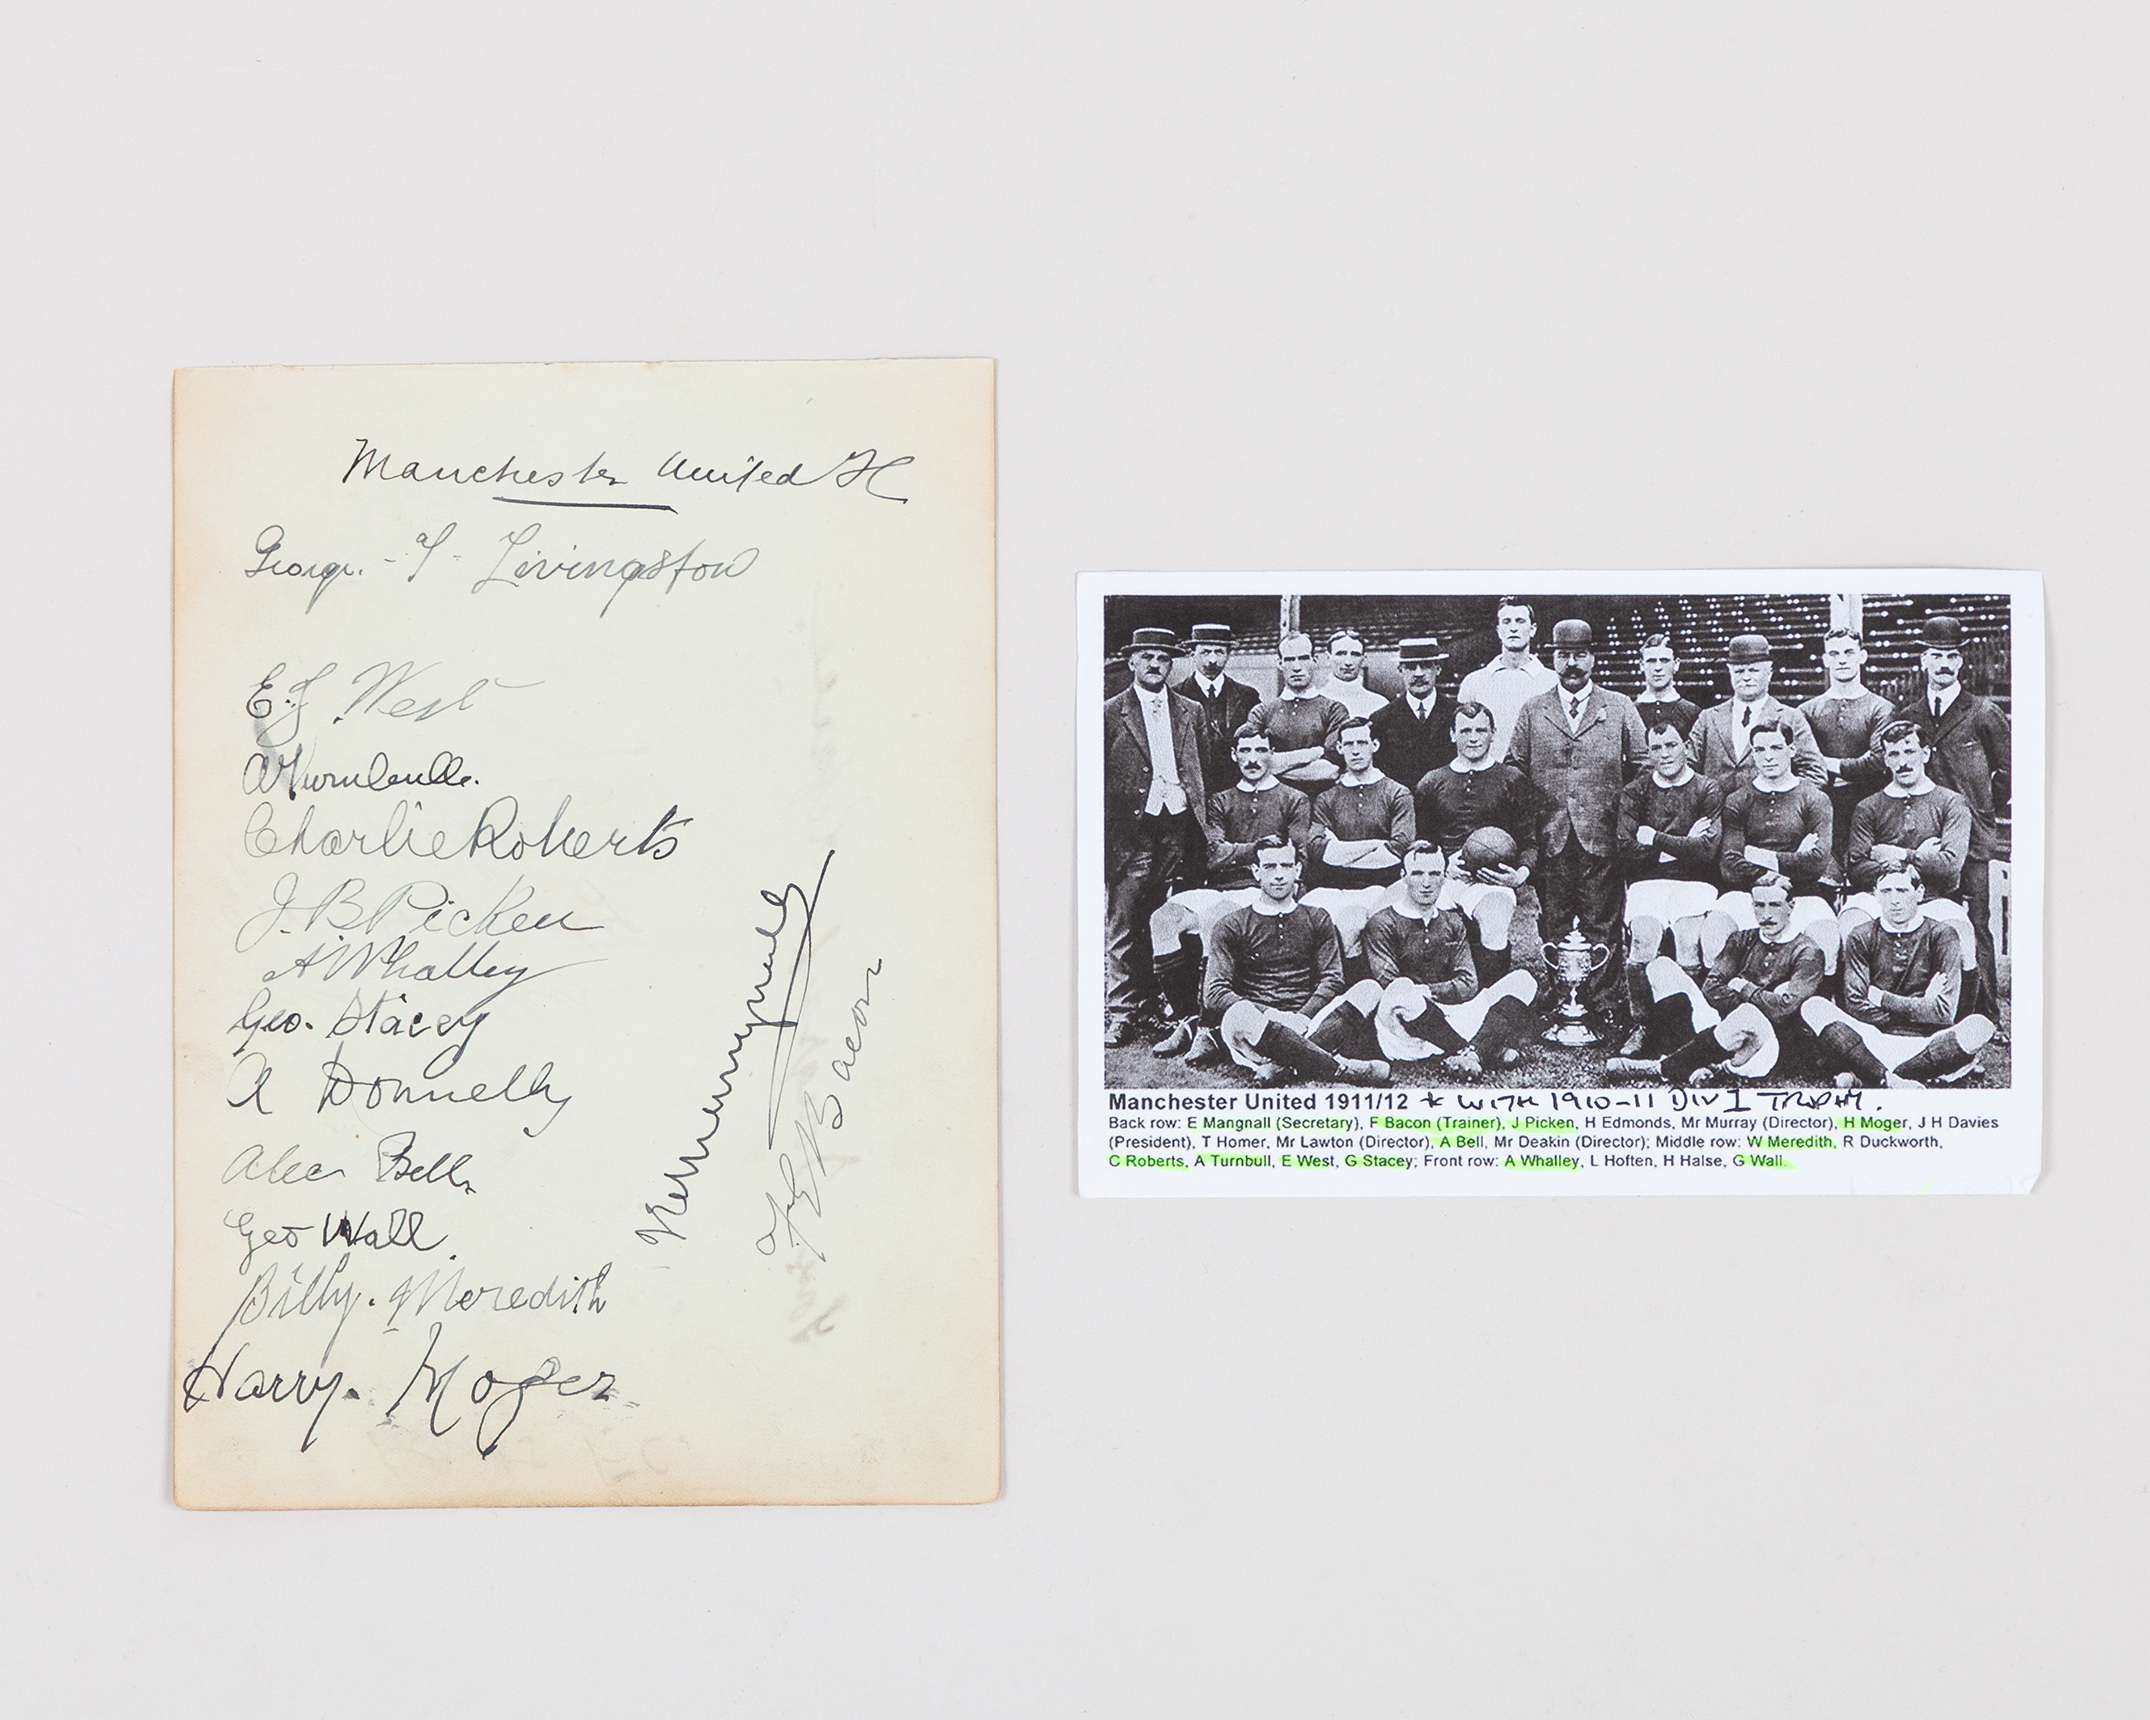 Manchester United FC
George. - T - Livingston
E. J. West
A Turnbull.
Charlie Roberts
J. B Picken
A Whalley
Geo. Stacey
A Donnelly
Alec Bell
Geo Wall
Billy. Meredith
Harry. Moger
F Bacon
Manchester United 1911/12 * WITH 1910-11 DIV 1 TROPHY.
Back row: E Mangnall (Secretary), F Bacon (Trainer), J Picken, H Edmonds, Mr Murray (Director), H Moger, J H Davies
(President), T Homer, Mr Lawton (Director), A Bell, Mr Deakin (Director); Middle row: W Meredith, R Duckworth,
C Roberts, A Turnbull, E West, G Stacey; Front row: A Whalley, L Hoften, H Halse, G Wall.